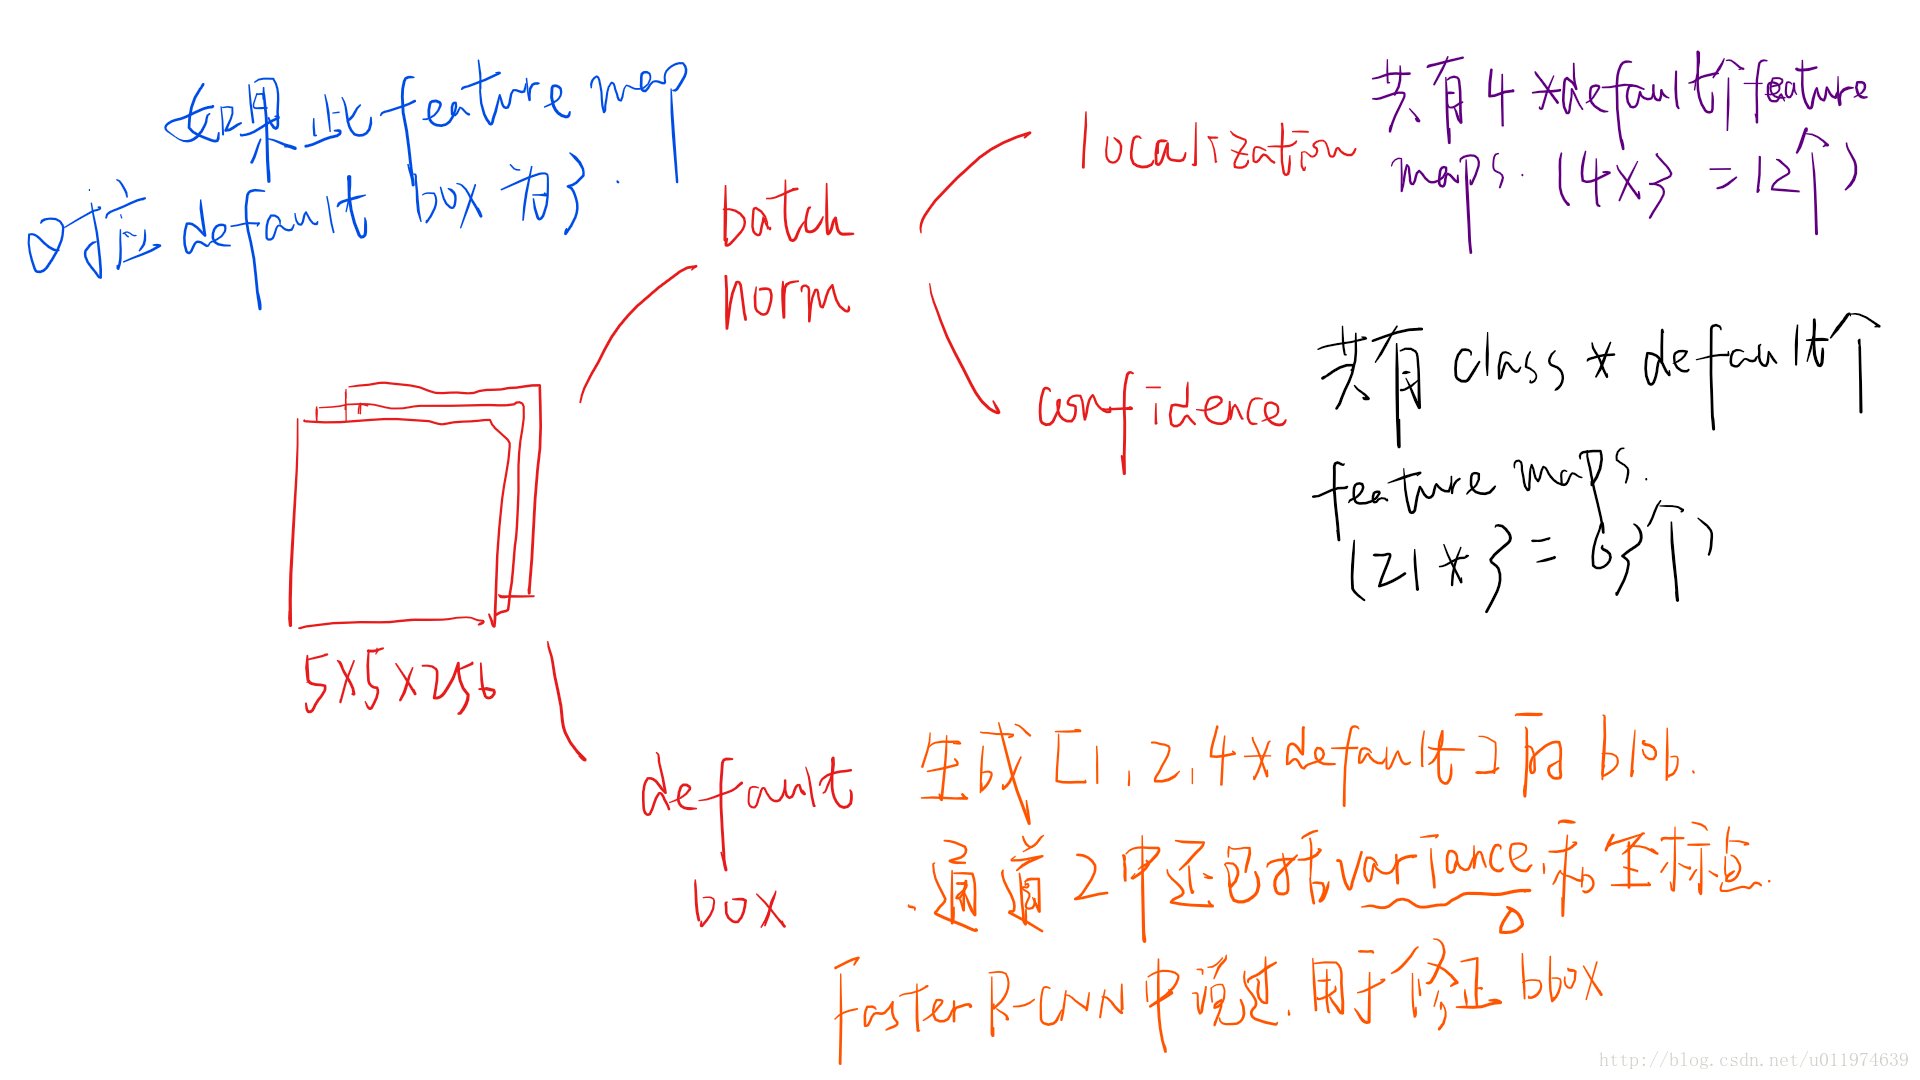 如果此feature map
对应default box为3.
batch
norm
localization
共有4*default个feature
maps. (4x3 =12个)
confidence
共有class * default个
feature maps.
(21*3 = 63个)
5x5x256
default
box
生成[1,2,4*default]的blob.
.通道2中还包括variance和坐标点.
Faster R-CNN中说过.用于修正bbox
http://blog.csdn.net/u011974639